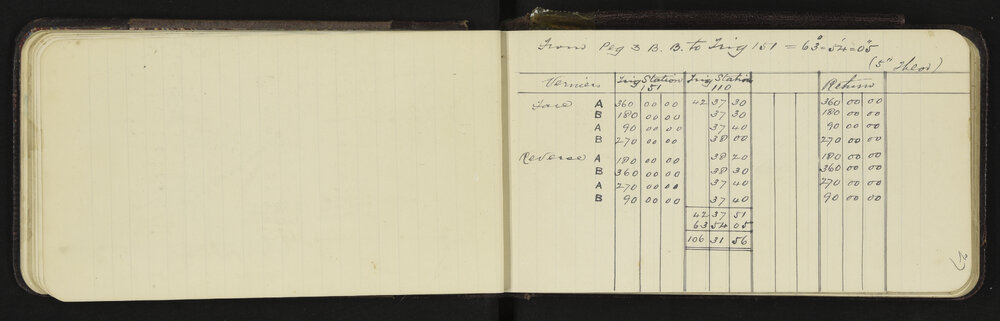 From Peg 3 B. B. to Trig 151 = 63°=54'=05"
(5" Theod)
Verniers Trig Station 151 Trig Station 110 Return
Face A 360 00 00 42 37 30 360 00 00
B 180 00 00 37 30 180 00 00
A 90 00 00 37 40 90 00 00
B 270 00 00 38 00 270 00 00
Reverse A 180 00 00 38 20 180 00 00
B 360 00 00 38 30 360 00 00
A 270 00 00 37 40 270 00 00
B 90 00 00 37 40 90 00 00
42 37 51
63 54 05
106 31 56